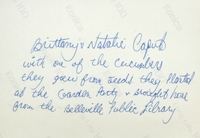 Brittany & Natalie Caputo
with one of the cucumbers
they grew from seeds they planted
at the Garden Party & brought here
from the Belleville Public Library